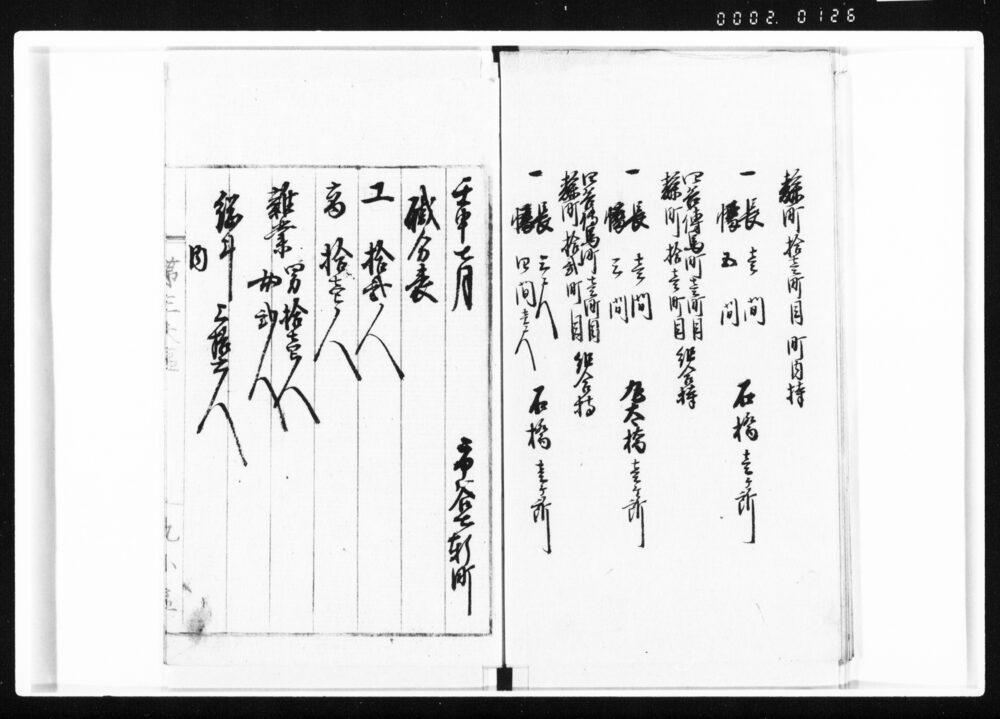 0002.0126
麹町拾壱町目 町内持
一 長 壱間
幅 五間
石橋壱ヶ所
四谷傳馬町壱町目
麹町拾壱町目 組合持
一 長 壱間
幅 三間
大橋壱ヶ所
四谷傳馬町壱町目
麹町拾弐町目 組合持
一 長 三尺
幅 四間壱尺
石橋壱ヶ所
壬申七月
市谷七軒町
職分表
工 拾弐人
商 拾壱人
雑業 男拾壱人
女弐人
総計
人
内
第三大區
九小區